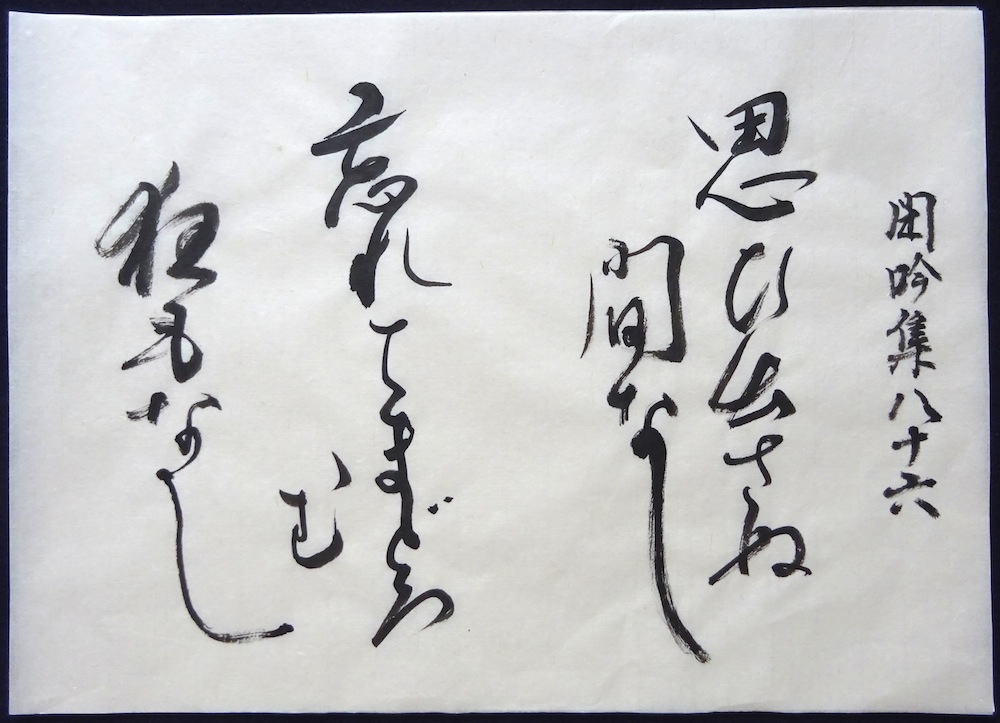 閑吟集八十六
思ひ出さぬ
間なし
忘れてまどろ
む
夜もなし